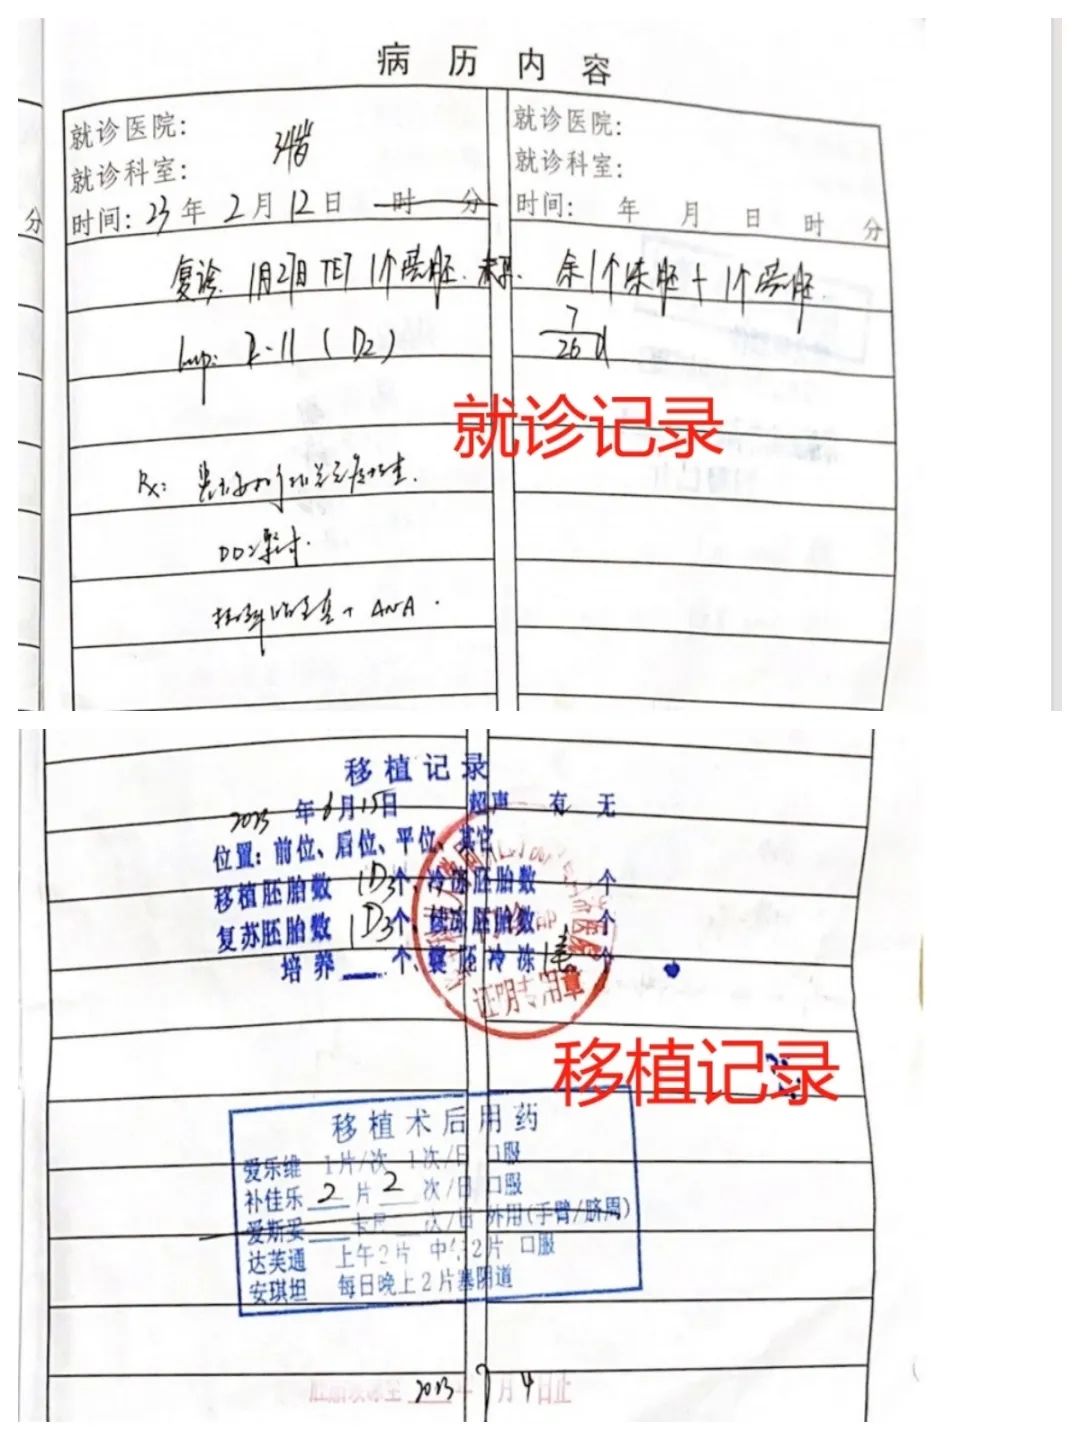 病 历 内 容
就诊医院：
就诊科室：
时间：23年2月12日 时 分
就诊医院：
就诊科室：
时间： 年 月 日 时 分
分
复诊. 1月27日 TET 1个囊胚. 未孕. 余1个冻胚+1个囊胚.
Imp: 2-11 (D2) 7/26d
就诊记录
Rx:
+ ANA.
移植记录
2023年6月15日 超声 有 无
位置：前位、后位、平位、其它
移植胚胎数 1D3个、冷冻胚胎数 个
复苏胚胎数 1D3个、续冻胚胎数 个
培养 个、囊胚冷冻 个
证明专用章
移植记录
移植术后用药
爱乐维 1片/次 1次/日 口服
补佳乐 2片 2次/日 口服
爱斯妥 次/日 外用(手臂/脐周)
达芙通 上午2片 中午2片 口服
安琪坦 每日晚上2片塞阴道
2023年7月4日止